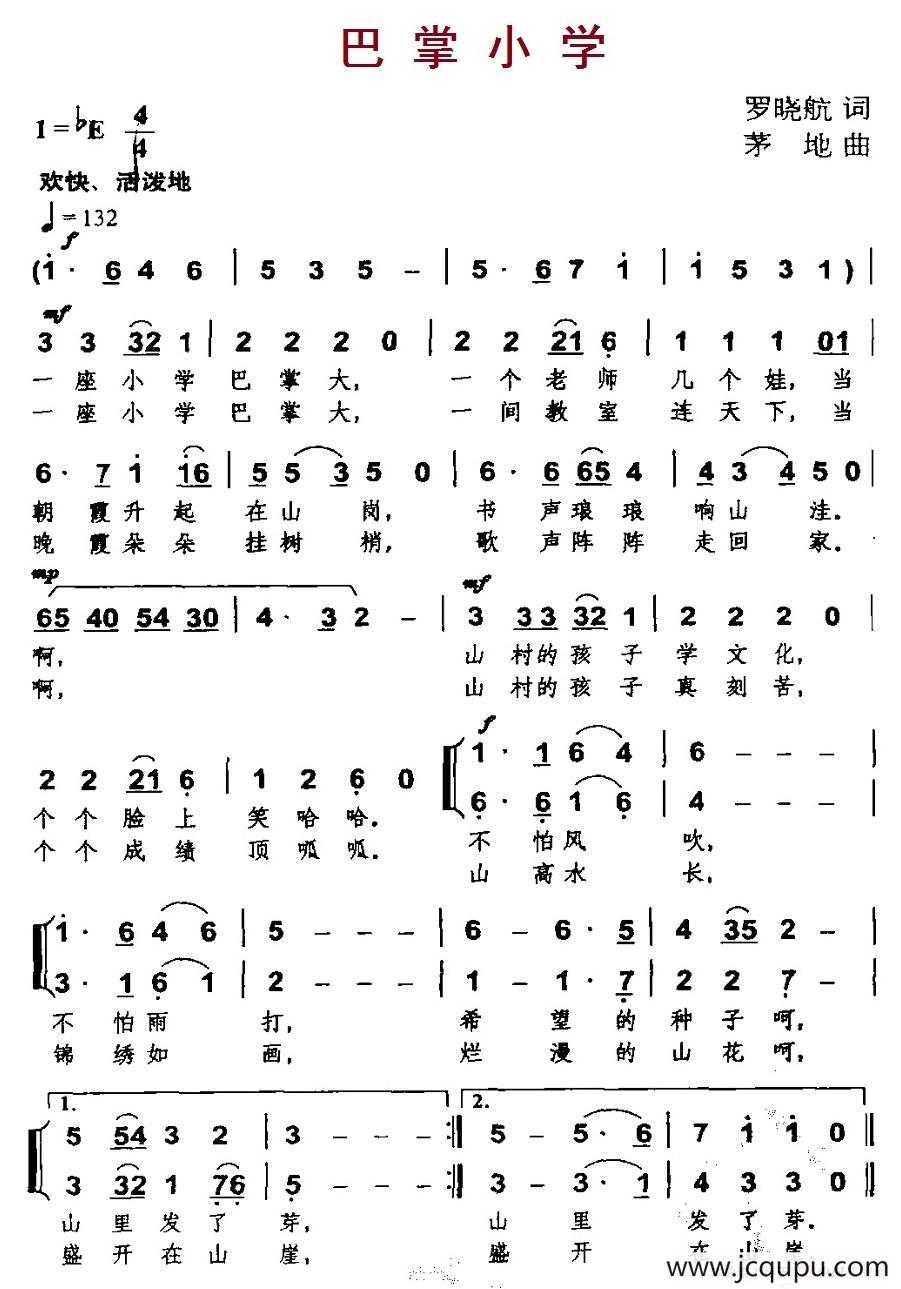 巴掌小学
罗晓航 词
1=♭E 4/4
茅 地 曲
欢快、活泼地
♩=132
f
(1· 6 4 6 | 5 3 5 – | 5· 6 7 1 | 1 5 3 1) |
mf
3 3 32 1 | 2 2 2 0 | 2 2 21 6 | 1 1 1 01 |
一座小学巴掌大, 一个老师几个娃, 当
一座小学巴掌大, 一间教室连天下, 当
6· 7 1 16 | 5 5 3 5 0 | 6· 6 65 4 | 4 3 4 5 0 |
朝霞升起在山岗, 书声琅琅响山洼.
晚霞朵朵挂树梢, 歌声阵阵走回家.
mp mf
65 40 54 30 | 4· 3 2 – | 3 33 32 1 | 2 2 2 0 |
啊, 山村的孩子学文化,
啊, 山村的孩子真刻苦,
f
1· 1 6 4 | 6 – – – |
2 2 21 6 | 1 2 6 0
6· 6 1 6 | 4 – – – |
个个脸上笑哈哈. 不怕风吹,
个个成绩顶呱呱. 山高水长,
1· 6 4 6 | 5 – – – | 6 – 6· 5 | 4 35 2 – |
3· 1 6 1 | 2 – – – | 1 – 1· 7 | 2 2 7 – |
不怕雨打, 希望的种子呵,
锦绣如画, 烂漫的山花呵,
1. 2.
5 54 3 2 | 3 – – – :‖ 5 – 5· 6 | 7 1 1 0 ‖
3 32 1 76 | 5 – – – :‖ 3 – 3· 1 | 4 3 3 0 ‖
山里发了芽, 山里发了芽.
盛开在山崖, 盛开在山崖
www.jcqupu.com